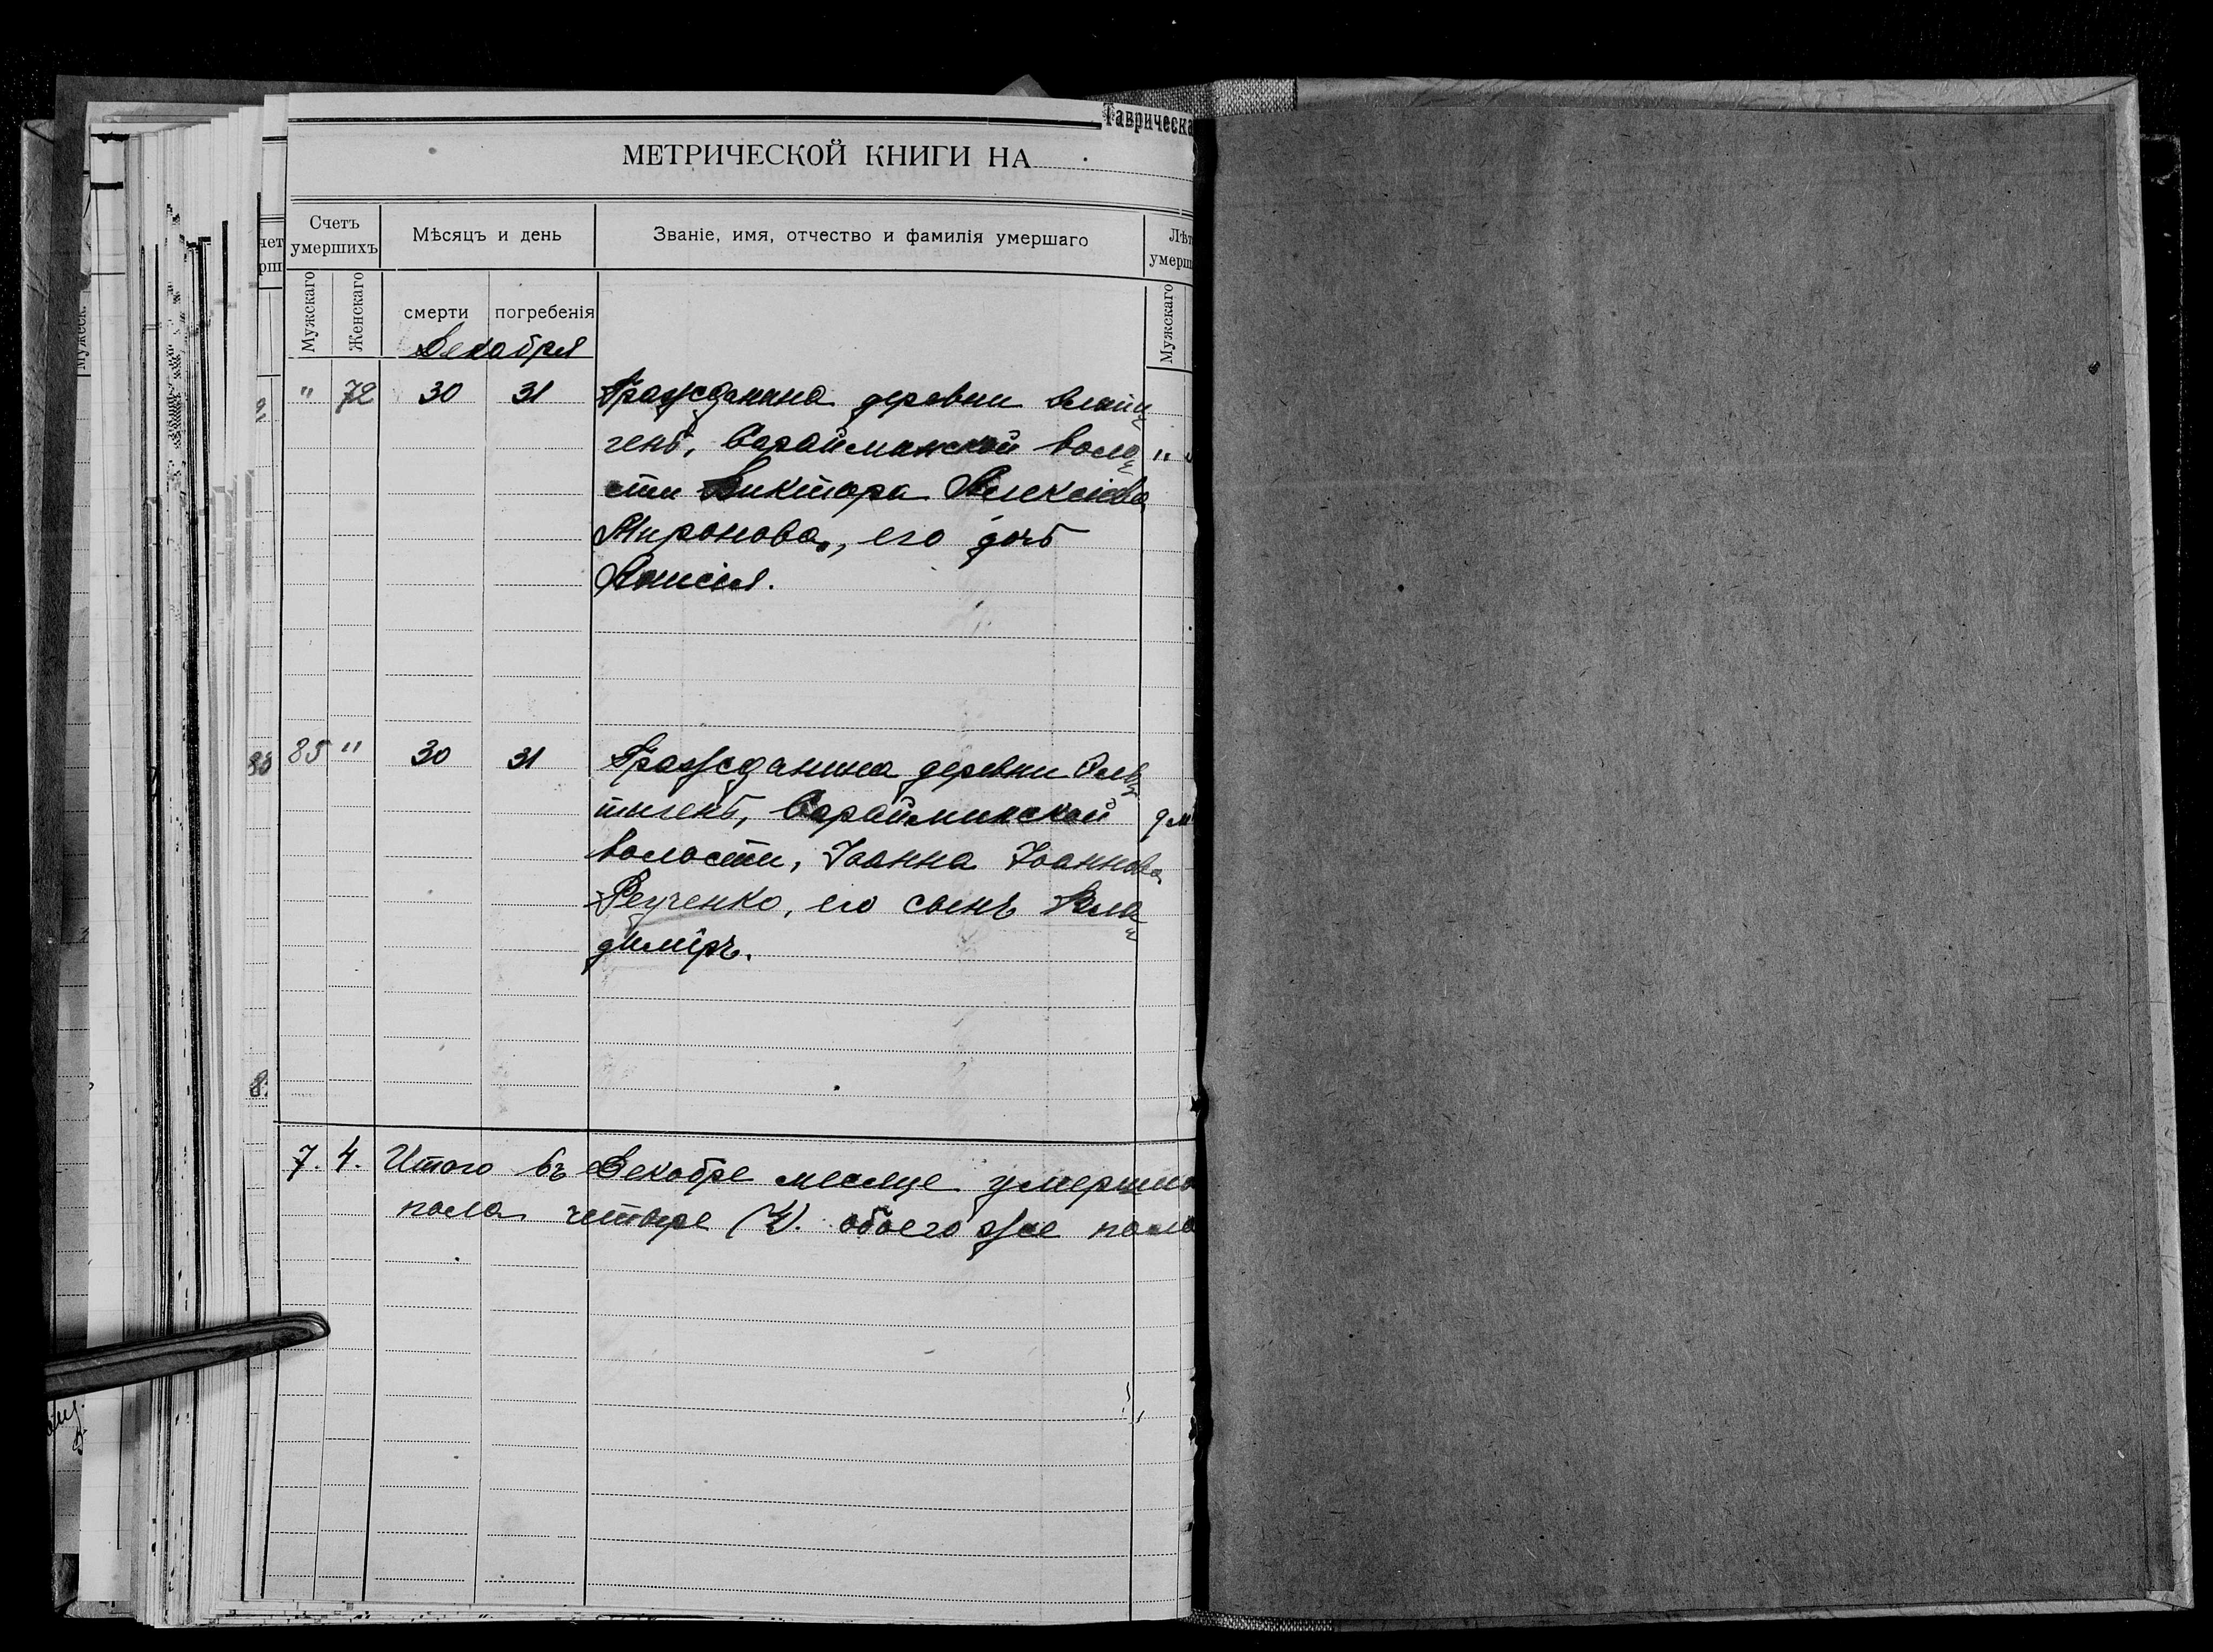 Таврическа
МЕТРИЧЕСКОЙ КНИГИ НА
Счетъ умершихъ
Мѣсяцъ и день
Званіе, имя, отчество и фамилія умершаго
Лѣт
умерш
Мужскаго
Женскаго
смерти
погребенія
Мужскаго
Декабря
" 72 30 31 Гражданина деревни
генъ, Сарайминской воло "
сти Виктора Алексіева
Миронова, его дочь
Анисія.
85 " 30 31 Гражданина деревни
тигенъ, Сарайминской 9 м
волости, Іоанна Іоаннова
Реученко, его сынъ Вла
диміръ.
7. 4. Итого въ Декабре месяце умершихъ
пола четыре (4). обоего же пола